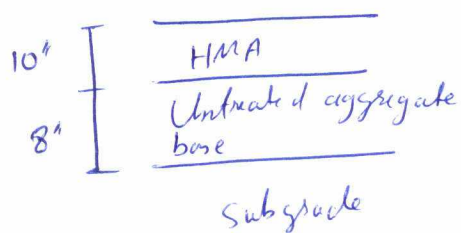 10"
HMA
8"
Untreated aggregate
base
Subgrade